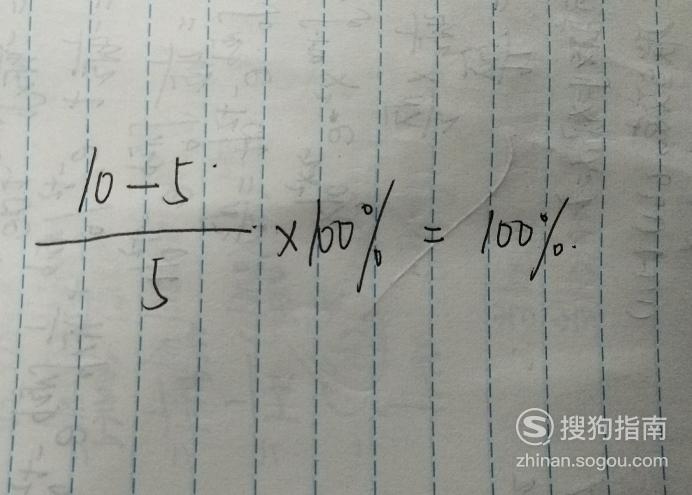 10-5
/5 ×100% = 100%.
搜狗指南
zhinan.sogou.com